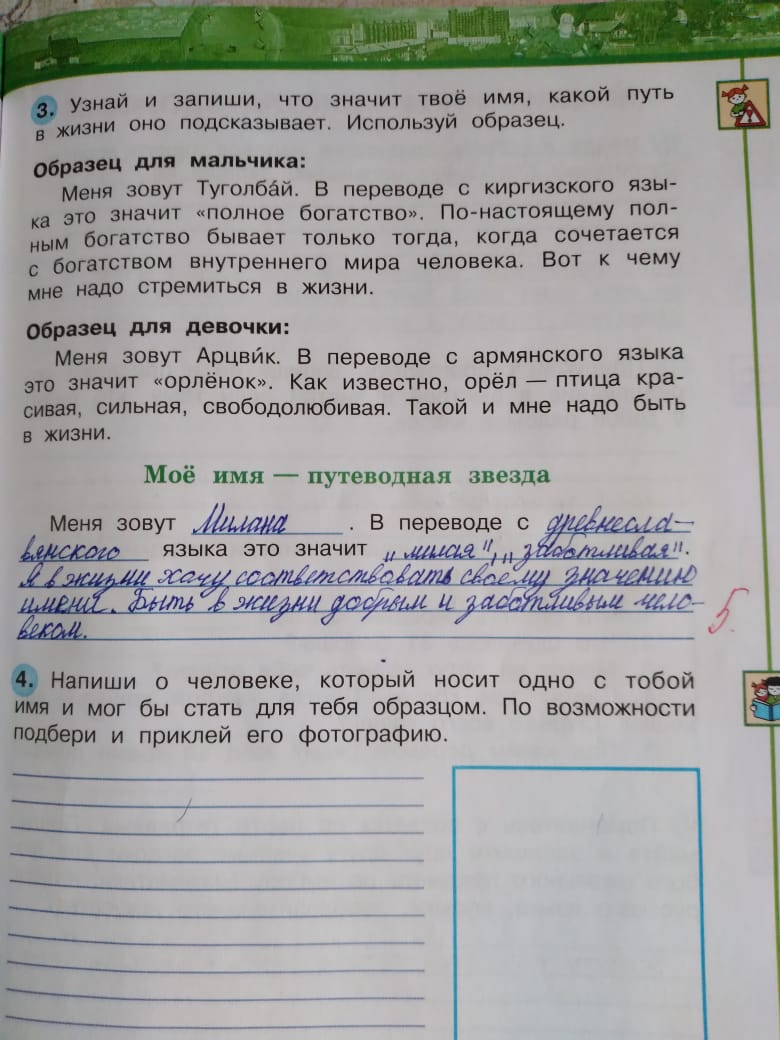 3. Узнай и запиши, что значит твоё имя, какой путь
в жизни оно подсказывает. Используй образец.
Образец для мальчика:
Меня зовут Туголба́й. В переводе с киргизского язы-
ка это значит «полное богатство». По-настоящему пол-
ным богатство бывает только тогда, когда сочетается
с богатством внутреннего мира человека. Вот к чему
мне надо стремиться в жизни.
Образец для девочки:
Меня зовут Арцви́к. В переводе с армянского языка
это значит «орлёнок». Как известно, орёл — птица кра-
сивая, сильная, свободолюбивая. Такой и мне надо быть
в жизни.
Моё имя — путеводная звезда
Меня зовут Милана. В переводе с древнесла-
вянского языка это значит „милая", „заботливая".
Я в жизни хочу соответствовать своему значению
имени. Быть в жизни добрым и заботливым чело-
веком.
5.
4. Напиши о человеке, который носит одно с тобой
имя и мог бы стать для тебя образцом. По возможности
подбери и приклей его фотографию.